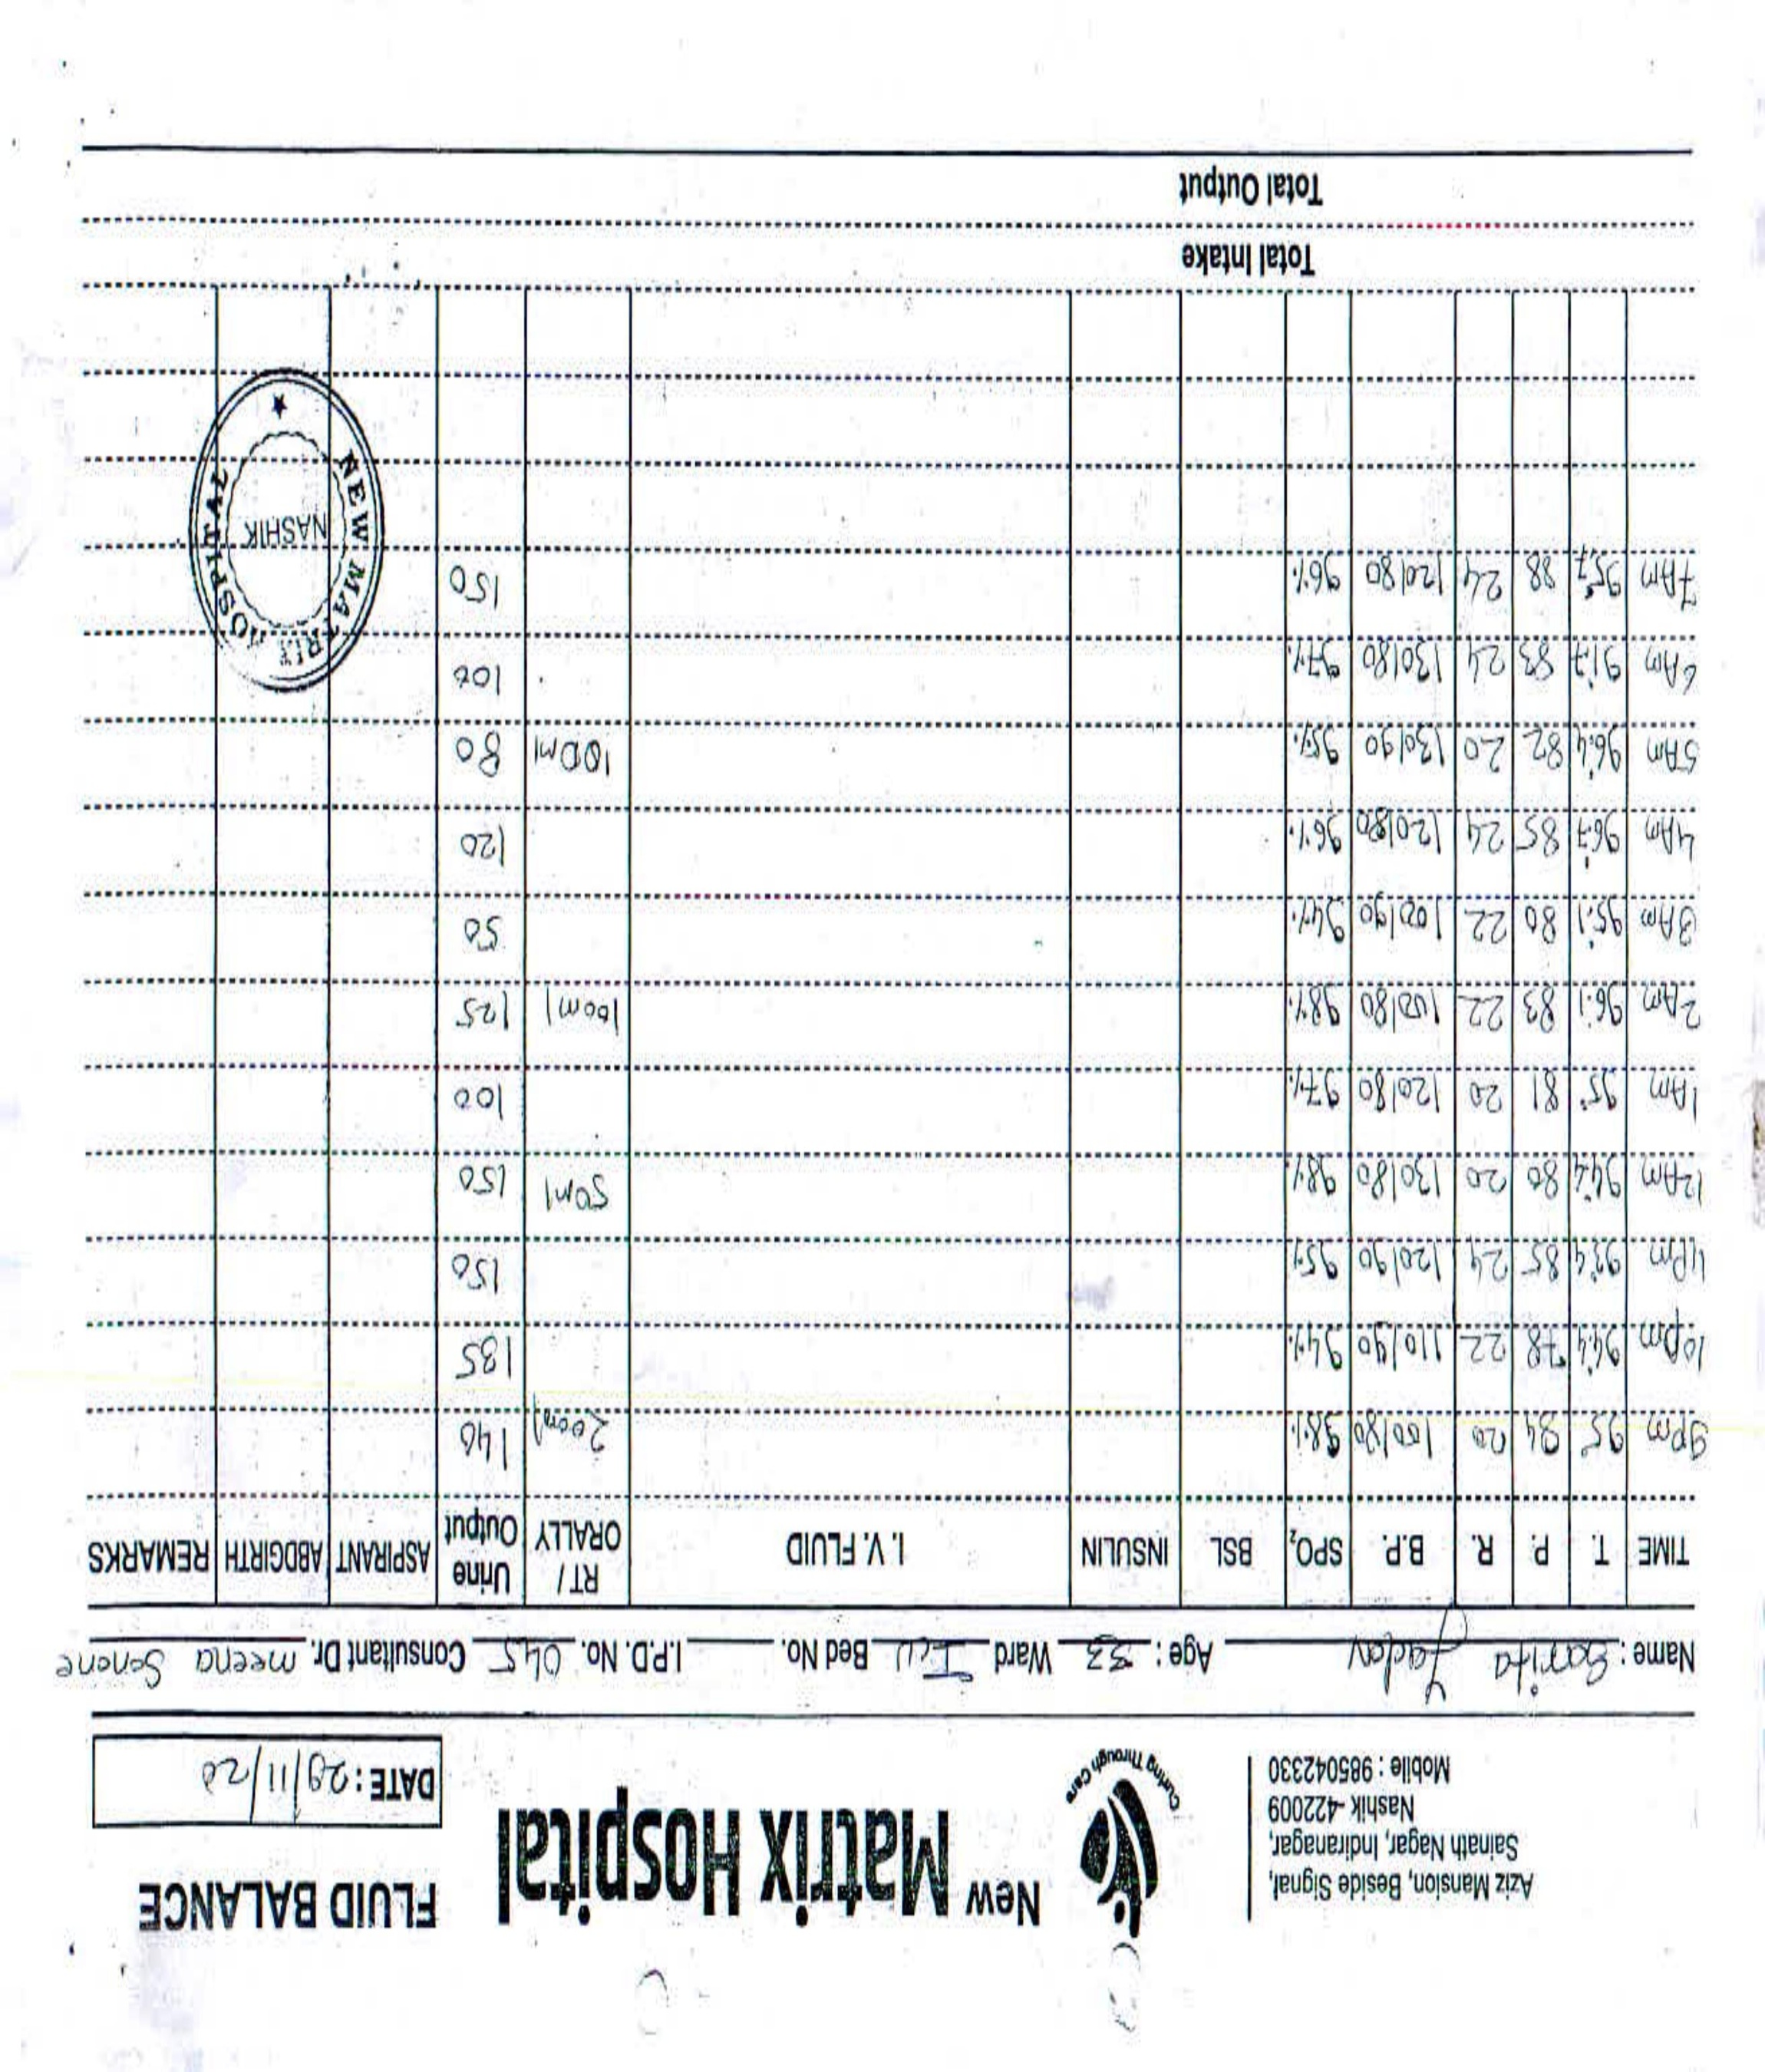 Aziz Mansion, Beside Signal,
Sainath Nagar, Indiranagar,
Nashik -422009
Mobile : 985042330
Curing Through Care
New Matrix Hospital
FLUID BALANCE
DATE : 29/11/20
Name : Sarita Yadav Age : 33 Ward ICU Bed No. I.P.D. No. 045 Consultant Dr. meena Sonone
TIME T. P. R. B.P. SPO2 BSL INSULIN I. V. FLUID RT / ORALLY Urine Output ASPIRANT ABDGIRTH REMARKS
9pm 95° 84 20 100/80 98% 200ml 140
10pm 94.4 78 22 110/90 94% 135
11pm 93.4 85 24 120/90 95% 150
12Am 94.2 80 20 130/80 98% 50ml 150
1Am 95° 81 20 120/80 97% 100
2Am 96.1 83 22 100/80 98% 100ml 125
3Am 95.1 80 22 100/90 94% 50
4Am 96.7 85 24 120/80 96% 120
5Am 96.4 82 20 130/90 95% 100ml 80
6Am 91.7 83 24 130/80 97% 100
7Am 95.7 88 24 120/80 96% 150
NEW MATRIX HOSPITAL
NASHIK
Total Intake
Total Output